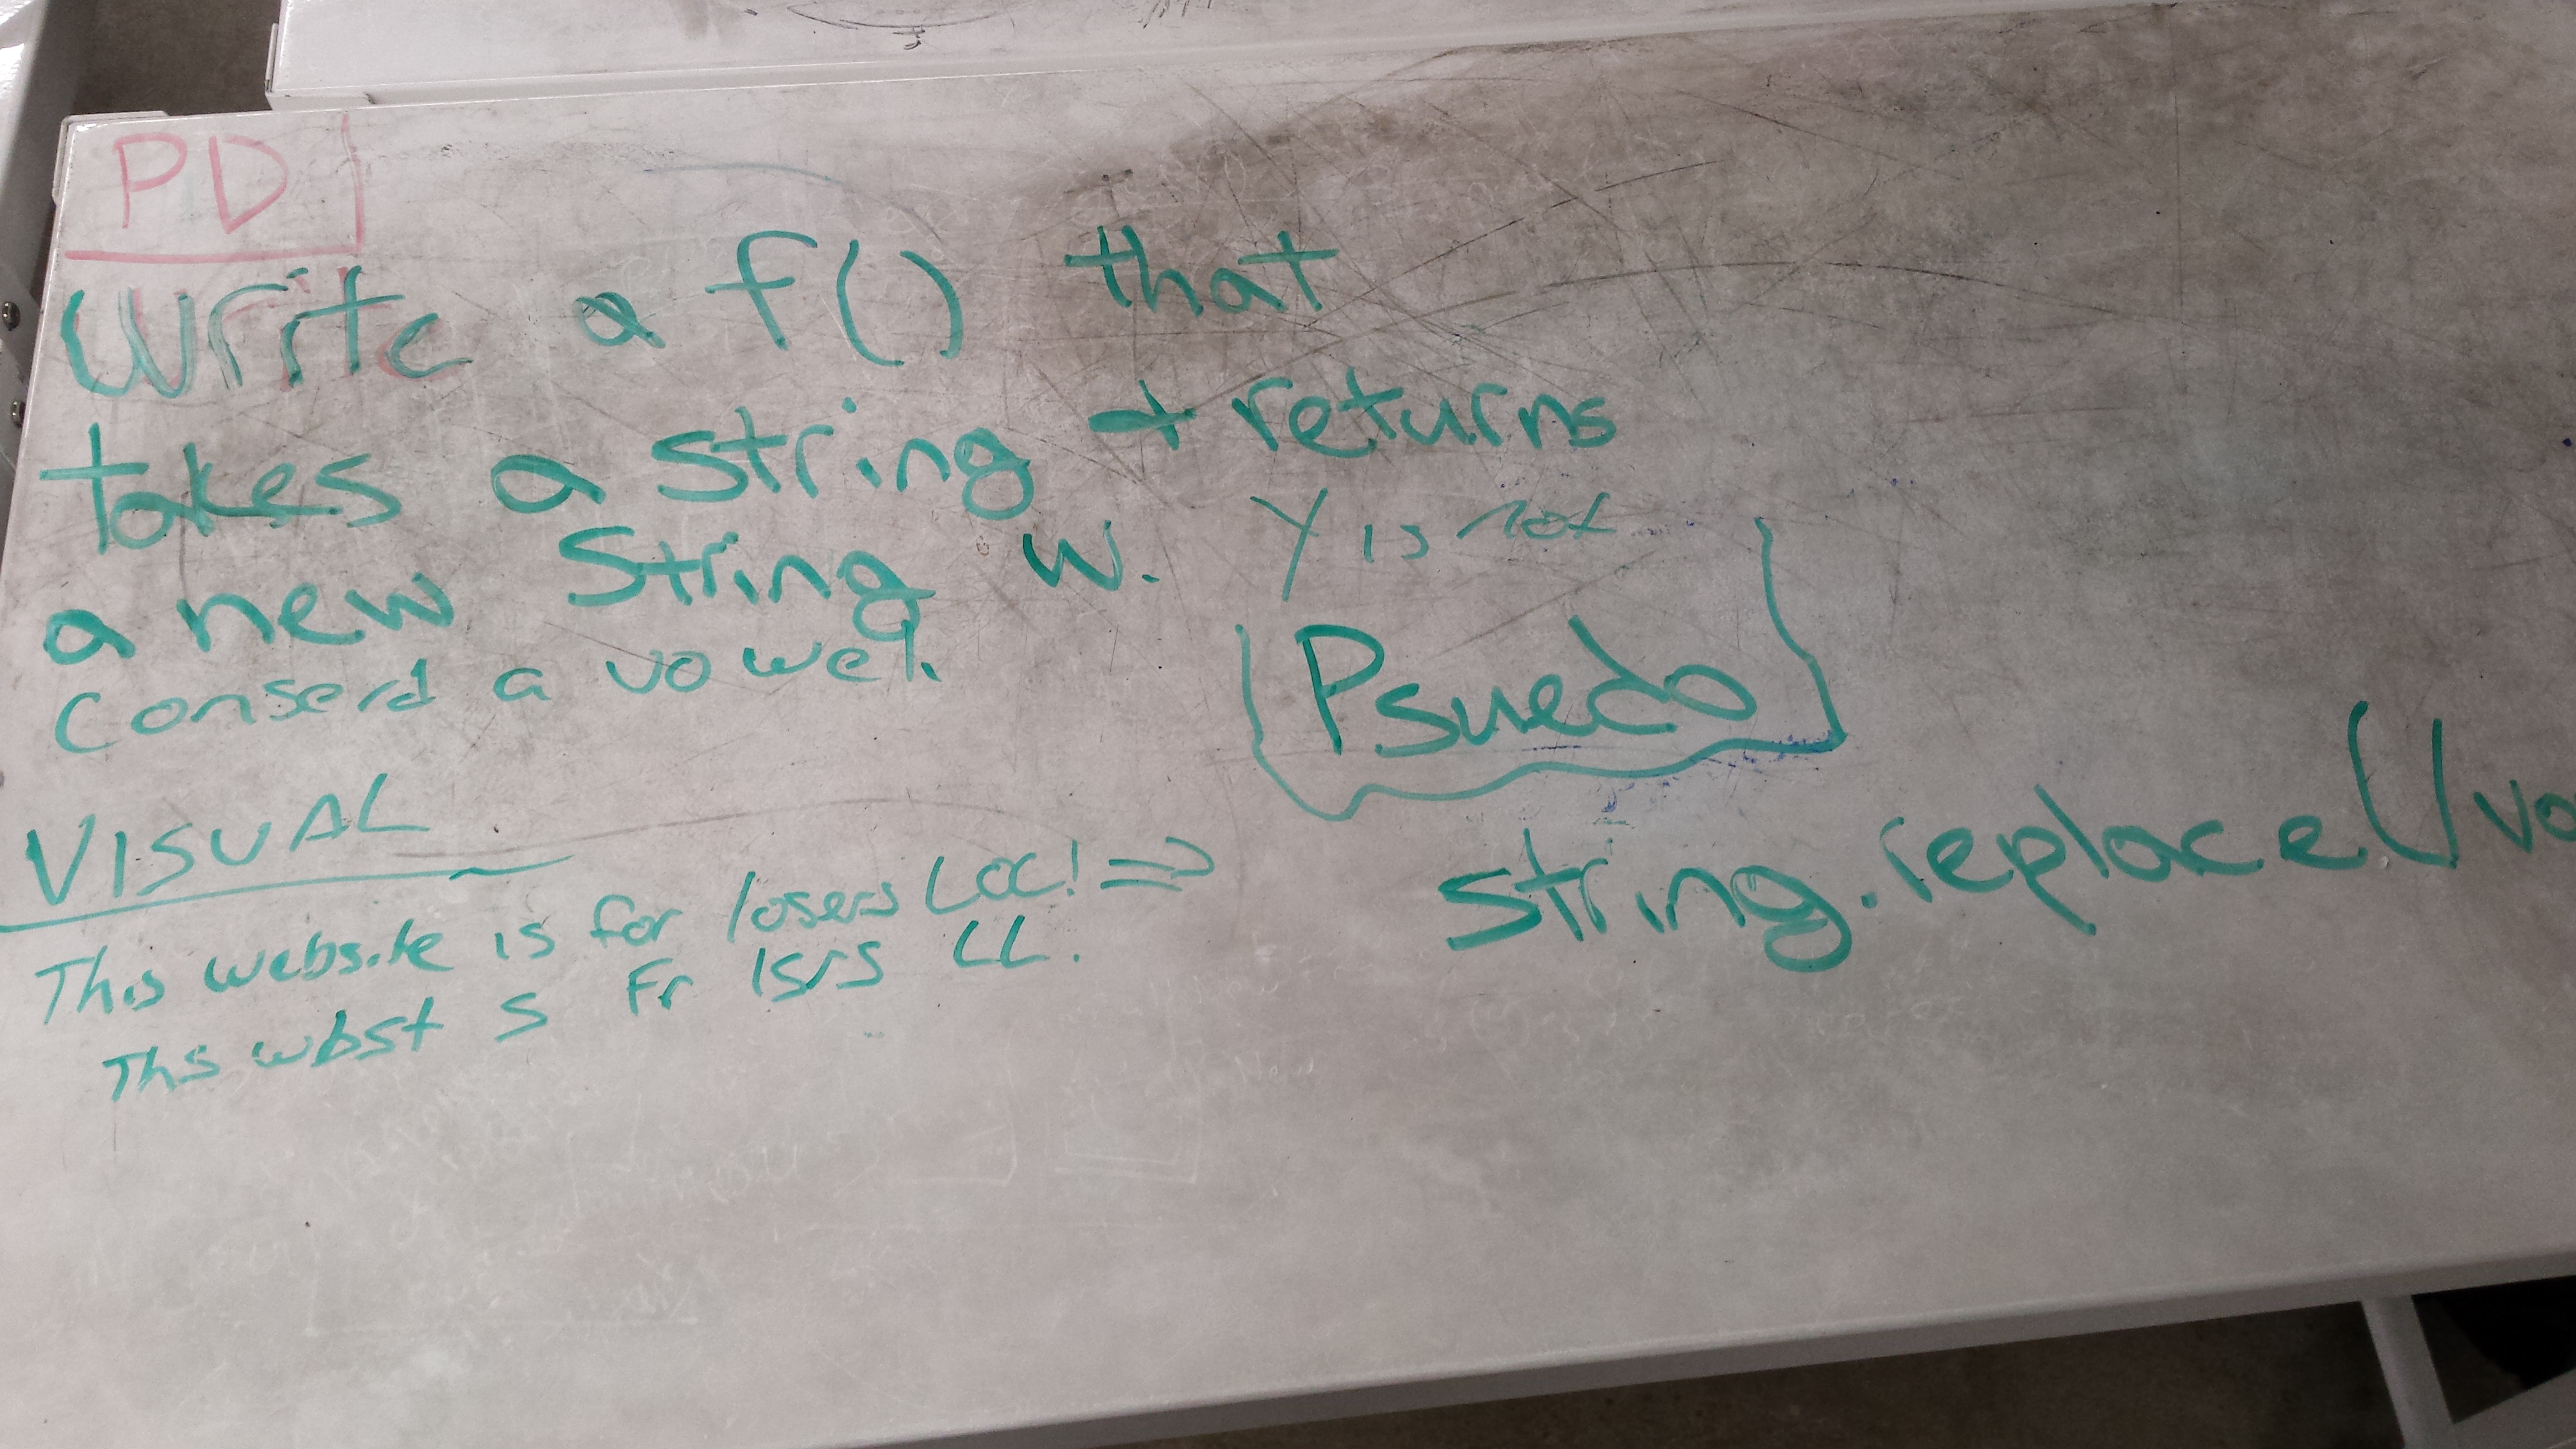 PD
Write a f() that
takes a string + returns
a new string w. Y is not
Conserd a vowel.
VISUAL
This website is for losers LOL! =>
Ths wbst s Fr lsrs LL.
Psuedo
string.replace(/vo